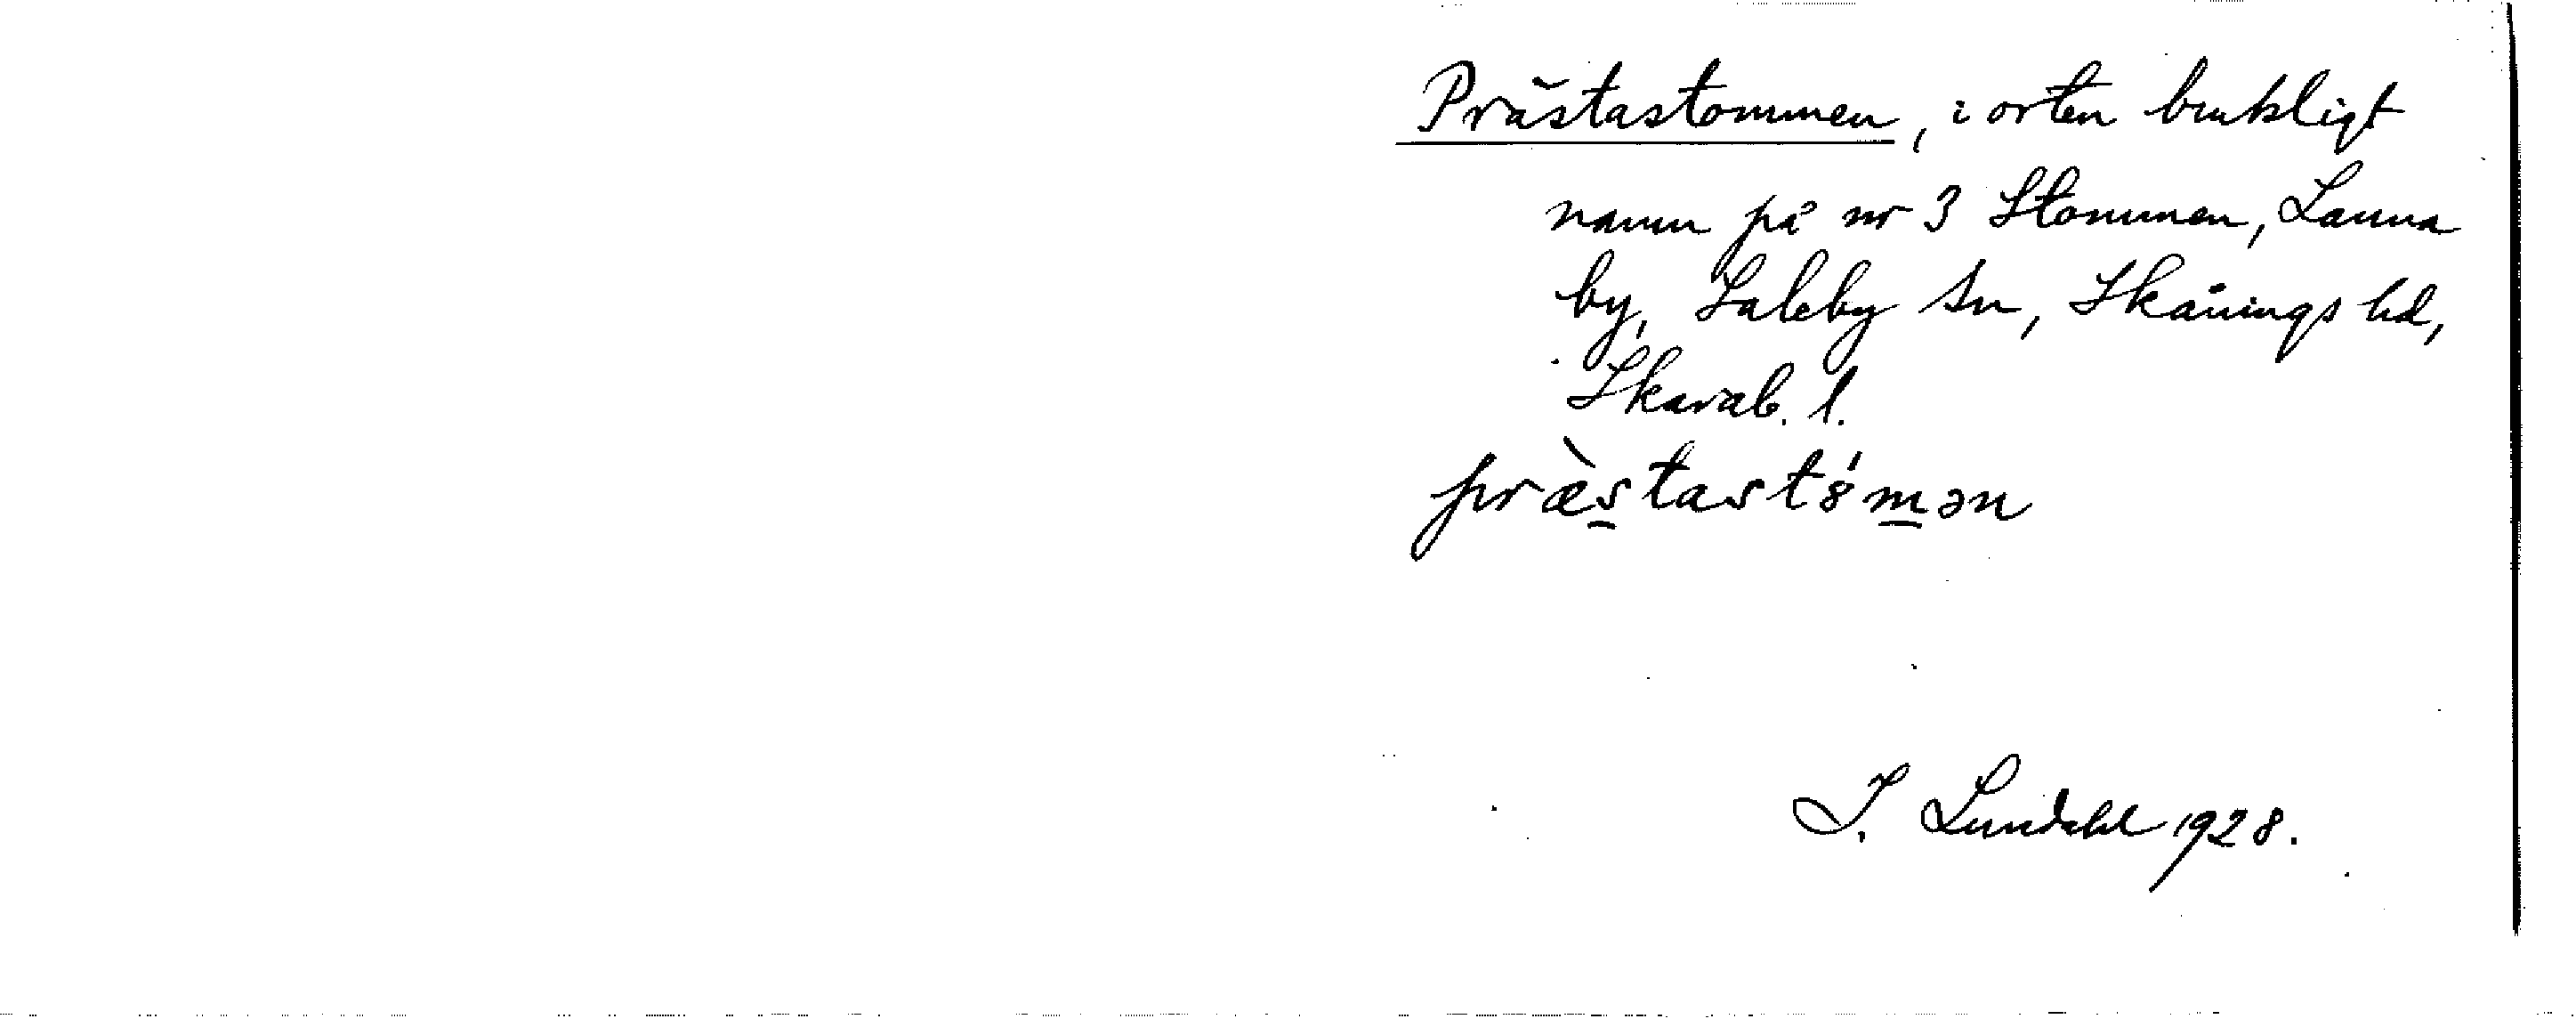 Prästastommen, i orten brukligt
namn på nr 3 Stommen, Launa
by, Saleby sn, Skånings hd,
Skarab. l.
præ̀stast8́mən
I. Lundahl 1928.